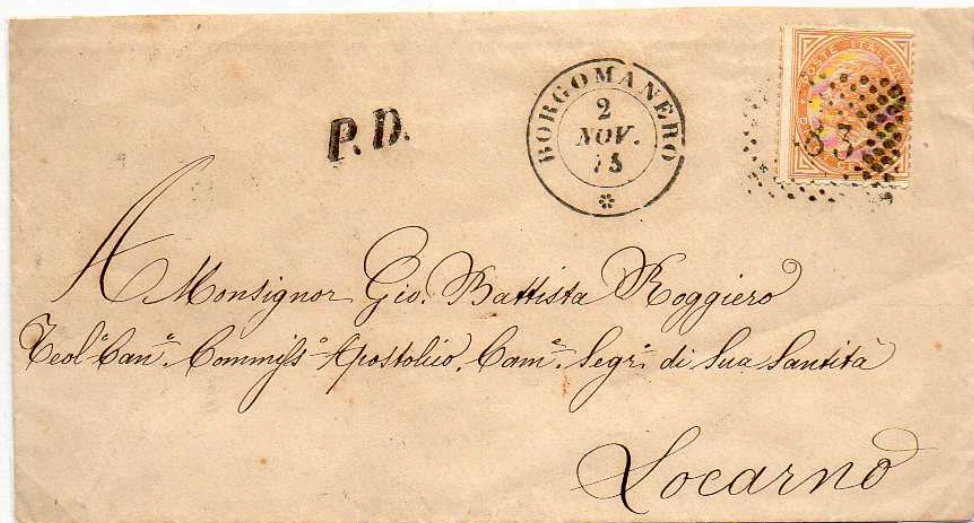 P.D.
BORGOMANERO
2
NOV.
75
POSTE ITALIANE
A Monsignor Gio. Battista Roggiero
Teol.º Can.º Commiss.º Apostolico, Cam.e Segr.º di Sua Santità
Locarno